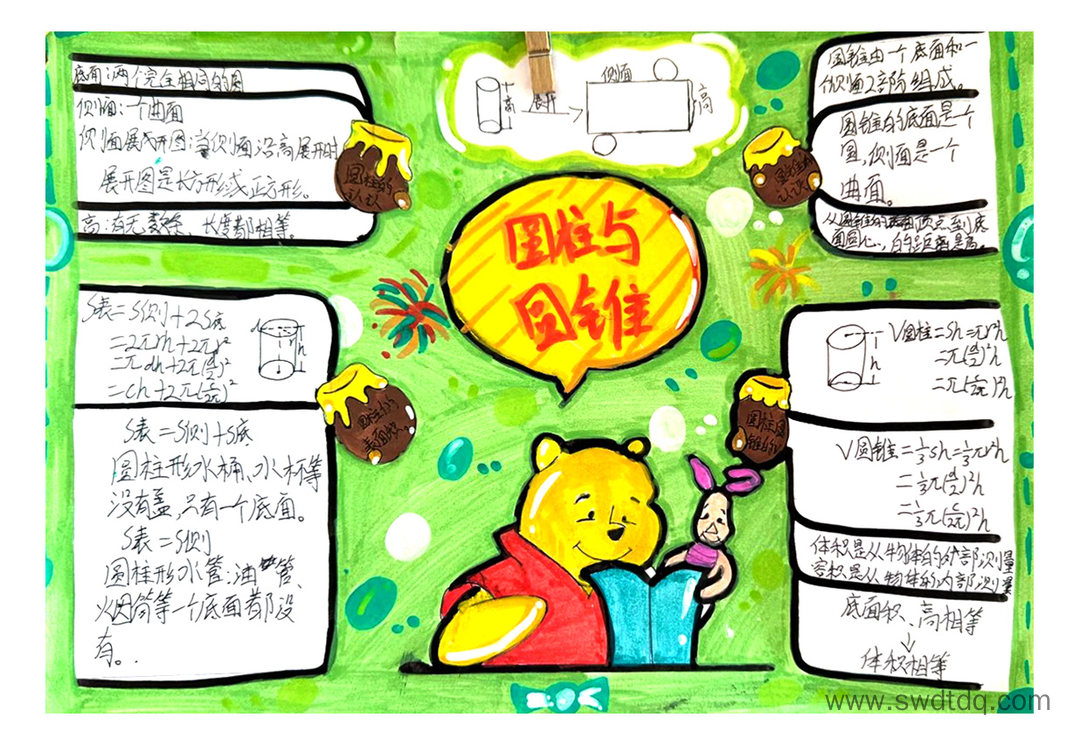 底面:两个完全相同的圆
侧面:一个曲面
侧面展开图:当侧面沿高展开时
展开图是长方形或正方形。
高:有无数条、长度都相等。
圆柱的
认识
高
展开
侧面
高
圆锥由一个底面和一
侧面2部阶组成。
圆锥的底面是个
圆,侧面是一个
曲面。
从圆锥的顶点到底
面圆心,的距离是高。
圆锥的
认识
圆柱与
圆锥
S表=S侧+2S底
=2πrh+2πr²
=πdh+2π(d/2)²
=Ch+2π(C/2π)²
h
圆柱的
表面积
S表=S侧+S底
圆柱形水桶、水杯等
没有盖,只有一个底面。
S表=S侧
圆柱形水管:油管、
烟囱等一个底面都没
有。
r
h
V圆柱=Sh=πr²h
=π(d/2)²h
=π(C/2π)²h
圆柱
V圆锥=1/3Sh=1/3πr²h
=1/3π(d/2)²h
=1/3π(C/2π)²h
体积是从物体的外部测量
容积是从物体的内部测量
底面积、高相等
↓
体积相等
www.swdtdq.com